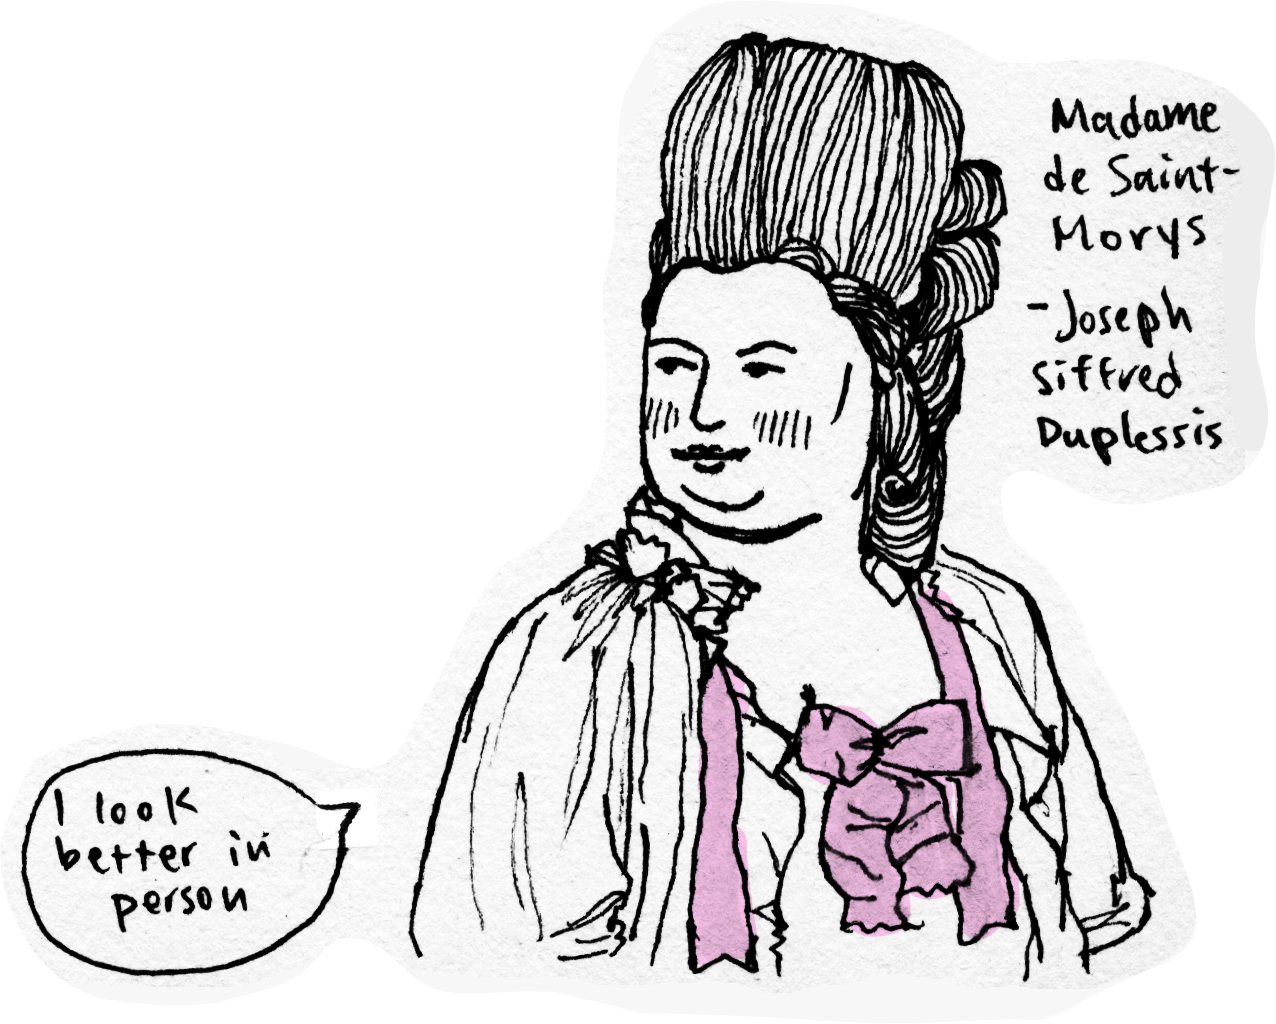 Madame
de Saint-
Morys
-Joseph
siffred
Duplessis
I look
better in
person